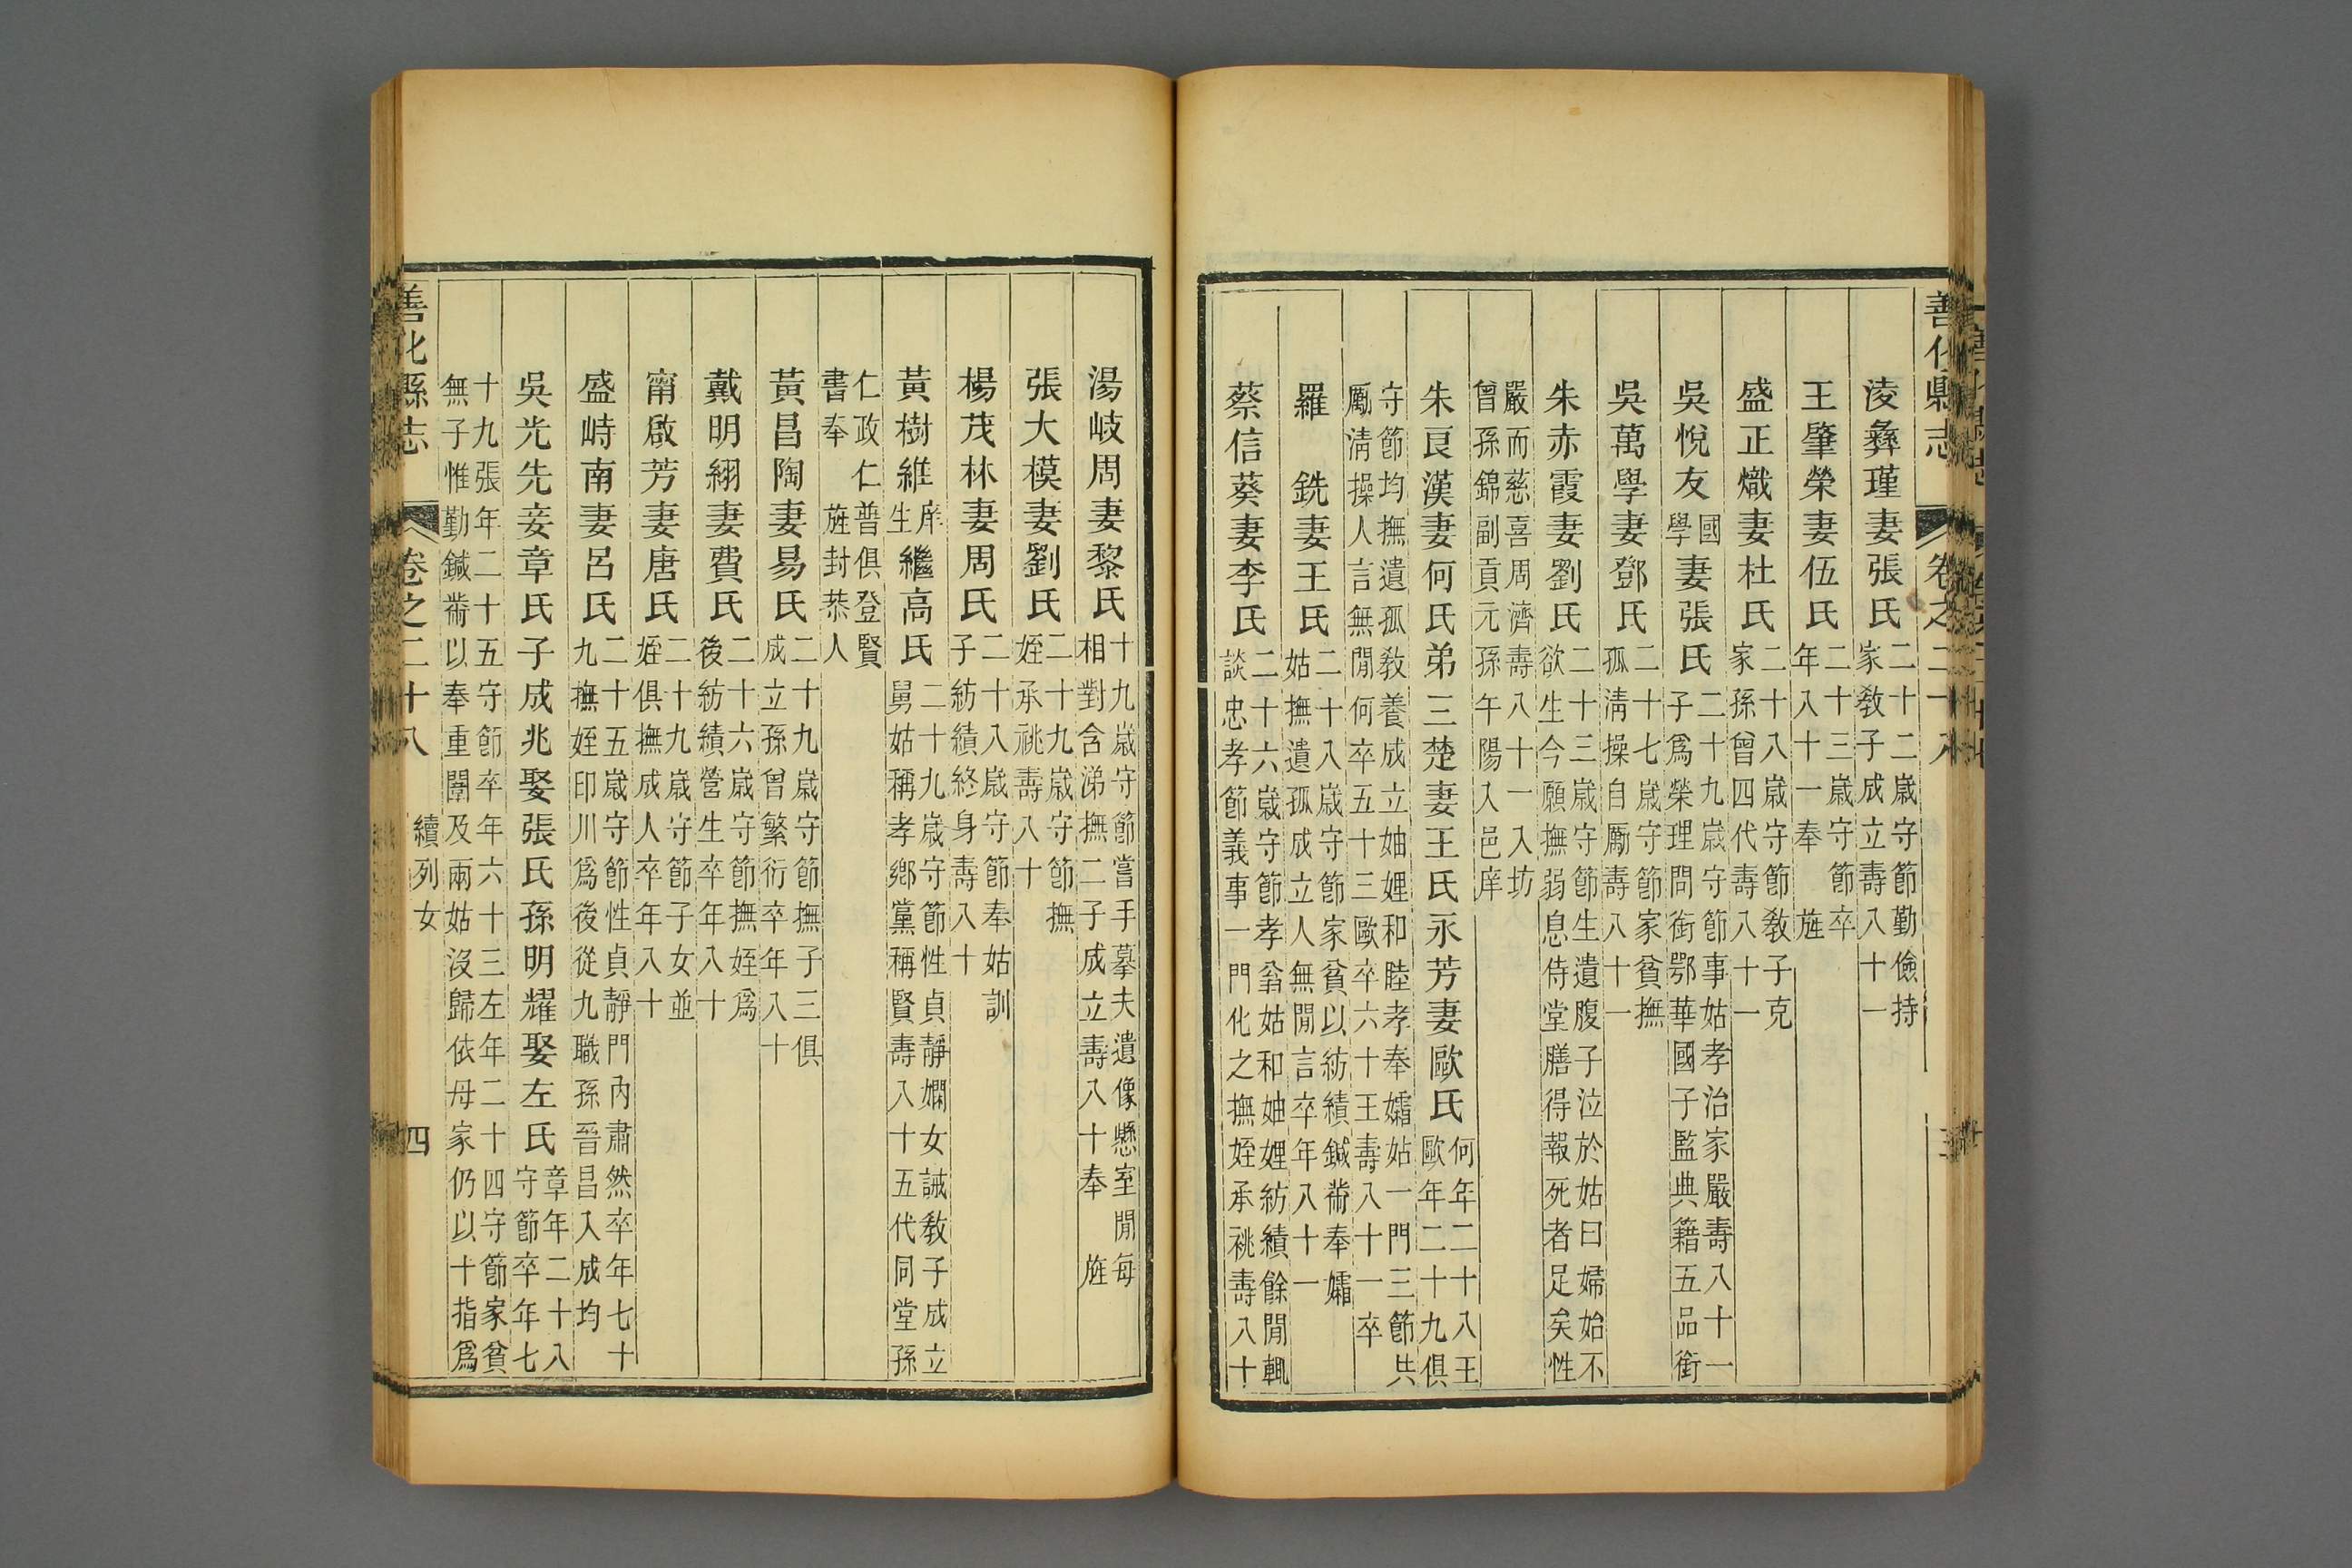 善化縣志 卷之二十八
淩彝瑾妻張氏 二十二歲守節勤儉持
家教子成立壽八十一
王肇榮妻伍氏 二十三歲守節卒
年八十一奉 旌
盛正熾妻杜氏 二十八歲守節教子克
家孫曾四代壽八十一
吳悅友 國
學 妻張氏 二十九歲守節事姑孝治家嚴壽八十一
子爲榮理問銜鄂華國子監典籍五品銜
吳萬學妻鄧氏 二十七歲守節家貧撫
孤淸操自厲壽八十一
朱赤霞妻劉氏 二十三歲守節生遺腹子泣於姑曰婦始不
欲生今願撫弱息侍堂膳得報死者足矣性
嚴而慈喜周濟壽八十一入坊
曾孫錦副貢元孫午陽入邑庠
朱良漢妻何氏弟三楚妻王氏永芳妻歐氏 何年二十八王
歐年二十九俱
守節均撫遺孤教養成立妯娌和睦孝奉孀姑一門三節共
厲淸操人言無閒何卒五十三歐卒六十王壽八十一卒
羅 銑妻王氏 二十八歲守節家貧以紡績鍼黹奉孀
姑撫遺孤成立人無閒言卒年八十一
蔡信葵妻李氏 二十六歲守節孝翁姑和妯娌紡績餘閒輒
談忠孝節義事一門化之撫姪承祧壽八十
湯岐周妻黎氏 十九歲守節嘗手摹夫遺像懸室閒每
相對含涕撫二子成立壽八十奉 旌
張大模妻劉氏 二十九歲守節撫
姪承祧壽八十
楊茂林妻周氏 二十八歲守節奉姑訓
子紡績終身壽八十
黃樹維 庠
生 繼高氏 二十九歲守節性貞靜嫻女誡教子成立
舅姑稱孝鄉黨稱賢壽八十五代同堂孫
仁政仁普俱登賢
書奉 旌封恭人
黃昌陶妻易氏 二十九歲守節撫子三俱
成立孫曾繁衍卒年八十
戴明翊妻費氏 二十六歲守節撫姪爲
後紡績營生卒年八十
甯啟芳妻唐氏 二十九歲守節子女並
姪俱撫成人卒年八十
盛峙南妻呂氏 二十五歲守節性貞靜門內肅然卒年七十
九撫姪印川爲後從九職孫晉昌入成均
吳光先妾章氏子成兆娶張氏孫明耀娶左氏 章年二十八
守節卒年七
十九張年二十五守節卒年六十三左年二十四守節家貧
無子惟勤鍼黹以奉重闈及兩姑沒歸依母家仍以十指爲
善化縣志 卷之二十八 續列女 四